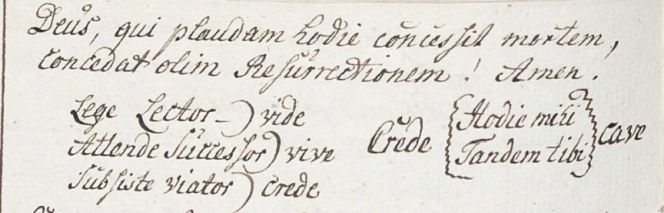 Deus, qui plaudam hodie concessit mortem,
Concedat olim Resurrectionem! Amen.
Lege Lector-) vide
Attende Successor) vive Crede {Hodie mihi Tandem tibi} cave
Subsiste viator) crede